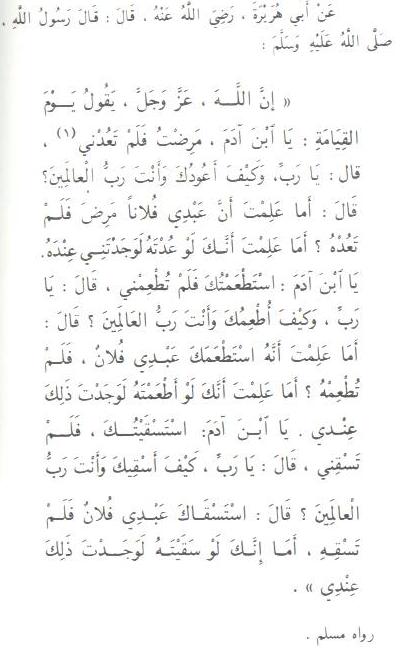 عَنْ أَبي هُرَيْرَةَ ، رَضِيَ اللَّهُ عَنْهُ ، قَالَ : قَالَ رَسُولُ اللَّهِ ،
صَلَّى اللَّهُ عَلَيْهِ وَسَلَّمَ :
« إنَّ اللَّـهَ ، عَزَّ وَجَلَّ ، يَقُولُ يَـوْمَ
القِيَامَةِ : يَا ٱبْنَ آدَمَ ، مَرِضْتُ فَلَمْ تَعُدْني (١) ،
قال : يَا رَبِّ، وَكَيْفَ أَعُودُكَ وَأَنْتَ رَبُّ الْعالَمِينَ؟
قَالَ : أَما عَلِمْتَ أَنَّ عَبْدِي فُلاناً مَرِضَ فَلَمْ
تَعُدْهُ ؟ أَمَا عَلِمْتَ أَنَّـكَ لَوْ عُدْتَهُ لَوَجَدْتَنِـي عِنْدَهُ.
يَا ٱبْنَ آدَمَ : اسْتَطْعَمْتُكَ فَلَمْ تُطْعِمْني ، قَالَ : يَا
رَبِّ ، وَكَيْفَ أُطْعِمُكَ وَأَنْتَ رَبُّ العَالَمِينَ ؟ قالَ :
أَمَا عَلِمْتَ أَنَّهُ اسْتَطْعَمَكَ عَبْدِي فُلانٌ ، فَلَـمْ
تُطْعِمْهُ ؟ أَمَا عَلِمْتَ أَنَّكَ لَوْ أَطْعَمْتَهُ لَوَجَدْتَ ذَلِكَ
عِنْـدي . يَا ٱبْـنَ آدَمَ: اسْتَسْقَيْتُـكَ ، فَلَـمْ
تَسْقِني ، قَالَ : يَا رَبِّ ، كَيْفَ أَسْقِيكَ وَأَنْتَ رَبُّ
الْعالَمِينَ ؟ قَالَ : اسْتَسْقَـاكَ عَبْـدِي فُلانٌ فَلَـمْ
تَسْقِـهِ ، أَمَـا إِنَّـكَ لَوْ سَقَيْتَـهُ لَوَجَـدْتَ ذَلِكَ
عِنْدِي » .
رواه مسلم .